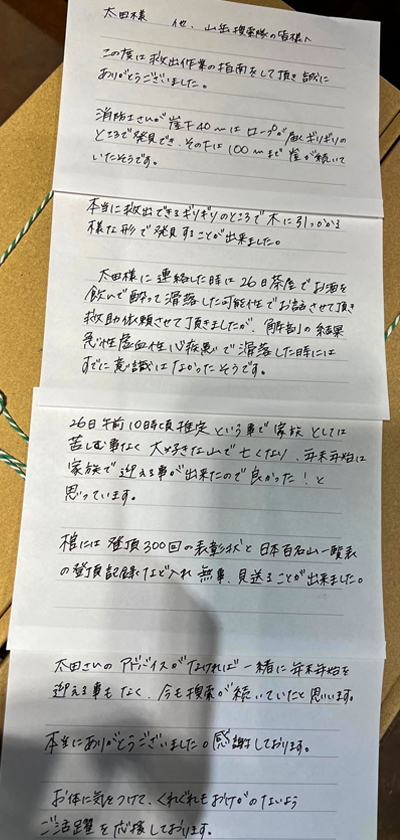 太田様　他、山岳捜索隊の皆様へ
この度は救出作業の指南をして頂き誠に
ありがとうございました。
消防士さんが崖下40mはロープが届くギリギリの
ところで発見でき、その下は100mまで崖が続いて
いたそうです。
本当に救出できるギリギリのところで木に引っかかる
様な形で発見することが出来ました。
太田様に連絡した時は26日茶屋でお酒を
飲んで酔って滑落した可能性でお話させて頂き
救助依頼させて頂きましたが、解剖の結果
急性虚血性心疾患で滑落した時には
すでに意識はなかったそうです。
26日午前10時頃推定という事で家族としては
苦しむ事なく大好きな山で亡くなり、年末年始は
家族で迎える事が出来たので良かった！と
思っています。
棺には登頂300回の表彰状と日本百名山一覧表
の登頂記録など入れ無事、見送ることが出来ました。
太田さんのアドバイスがなければ一緒に年末年始を
迎える事もなく、今も捜索が続いていたと思います。
本当にありがとうございました。感謝しております。
お体に気をつけて、くれぐれもおけがのないよう
ご活躍を応援しております。